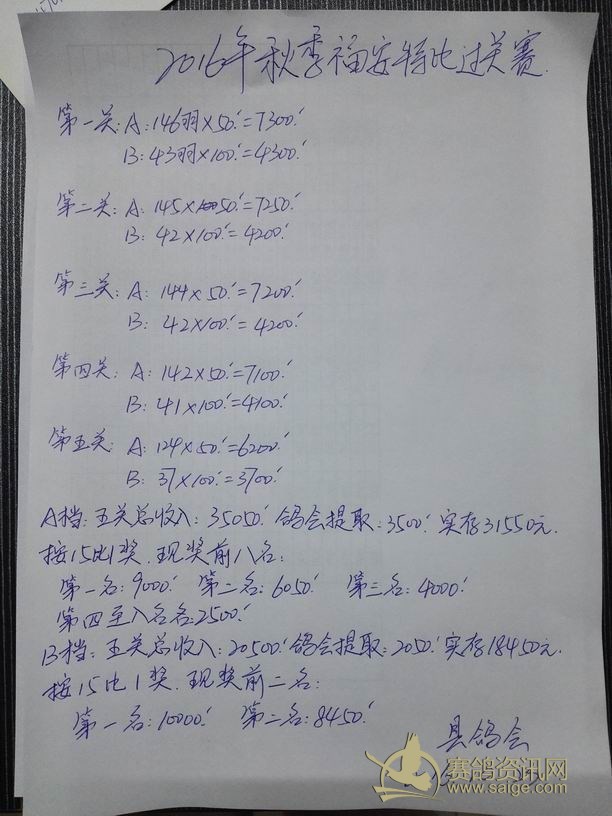 2016年秋季福安特比过关赛.
第一关: A: 146羽×50.=7300.
B: 43羽×100.=4300.
第二关: A: 145×50.=7250.
B: 42×100.=4200.
第三关: A: 144×50.=7200.
B: 42×100.=4200.
第四关: A: 142×50.=7100.
B: 41×100.=4100.
第五关: A: 124×50.=6200.
B: 37×100.=3700.
A档: 五关总收入: 35050. 鸽会提取: 3500. 实存31550元.
按15比1奖. 现奖前八名:
第一名: 9000. 第二名: 6050. 第三名: 4000.
第四至八名各: 2500.
B档: 五关总收入: 20500. 鸽会提取: 2050. 实存18450元.
按15比1奖. 现奖前二名:
第一名: 10000. 第二名: 8450.
县鸽会
赛鸽资讯网
www.saige.com